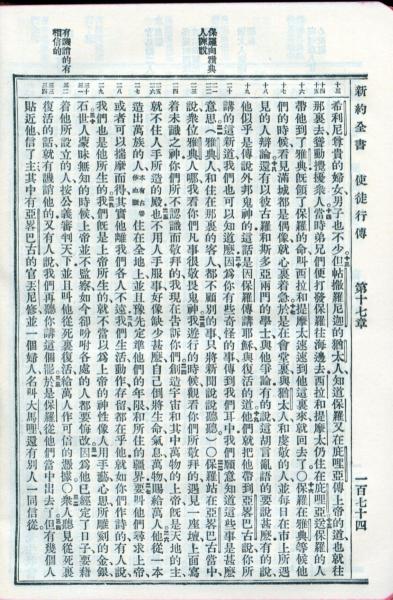 新約全書　使徒行傳　第十七章　一百七十四
保羅向雅典
人陳說
有譏誚的有
相信的
希利尼尊貴的婦女男子也不少但帖撒羅尼迦的猶太人知道保羅又在庇哩亞傳上帝的道也就往
那裏去聳動攪擾衆人當時弟兄們便打發保羅往海邊去西拉和提摩太仍住在庇哩亞送保羅的人
帶他到了雅典旣領了保羅的命叫西拉和提摩太速速到他這裏來就回去了○保羅在雅典等候他
們的時候看見滿城都是偶像就心裏着急於是在會堂裏與猶太人和虔敬的人並每日在市上所遇
見的人辯論還有以彼古羅和斯多亞兩門的學士與他爭論有的說這胡言亂語的要說甚麼有的說
他似乎是傳說外邦鬼神的這話是因保羅傳講耶穌與復活的道他們就把他帶到亞畧巴古說你所
講的這新道我們也可以知道麼因爲你有些奇怪的事傳到我們耳中我們願意知道這些事是甚麼
意思（雅典人和住在那裏的客人都不顧別的事只將新聞說說聽聽）○保羅站在亞畧巴古當中
說衆位雅典人哪我看你們凡事很敬畏鬼神我遊行的時候觀看你們所敬拜的遇見一座壇上面寫
着未識之神你們所不認識而敬拜的我現在告訴你們創造宇宙和其中萬物的上帝旣是天地的主
就不住人手所造的殿也不用人手服事好像缺少甚麼自己倒將生命氣息萬物賜給萬人他從一本
造出萬族的人本有古卷作血脈住在全地上並且豫先定準他們的年限和所住的疆界要叫他們尋求上帝
或者可以揣摩而得其實他離我們各人不遠我們生活動作存留都在乎他就如你們作詩的有人說
我們也是他所生的我們旣是上帝所生的就不當以爲上帝的神性像人用手藝心思所雕刻的金銀
石世人蒙昧無知的時候上帝並不監察如今卻吩咐各處的人都要悔改因爲他已經定了日子要藉
着他所設立的人按公義審判天下並且叫他從死裏復活給萬人作可信的憑據○衆人聽見從死裏
復活的話就有譏誚他的又有人說我們再聽你講這個罷於是保羅從他們當中出去了但有幾個人
貼近他信了主其中有亞畧巴古的官丟尼修並一個婦人名叫大馬哩還有別人一同信從